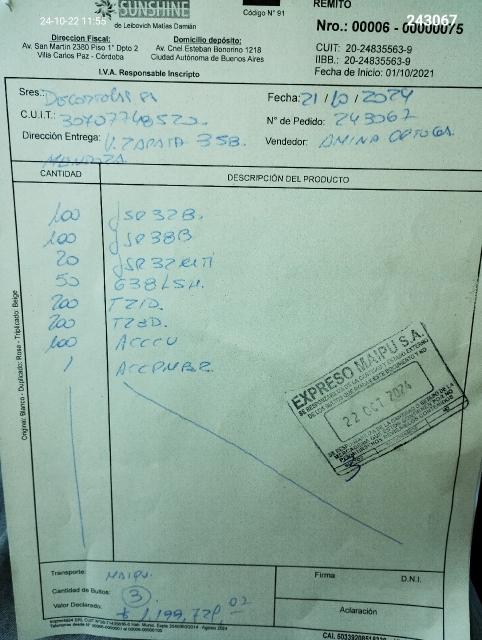 24-10-22 11:55
243067
SUNSHINE
de Leibovich Matías Damián
Código N° 91
REMITO
Nro.: 00006 - 00000075
Direccion Fiscal:
Av. San Martin 2380 Piso 1° Dpto 2
Villa Carlos Paz - Córdoba
Domicilio depósito:
Av. Cnel Esteban Bonorino 1218
Ciudad Autónoma de Buenos Aires
CUIT: 20-24835563-9
IIBB.: 20-24835563-9
Fecha de Inicio: 01/10/2021
I.V.A. Responsable Inscripto
Sres.:
Fecha: 21/10/2024
C.U.I.T.: 30707748520
N° de Pedido: 243067
Dirección Entrega: V. ZAPATA 358.
Vendedor: AMINA ORTEGA
MENDOZA
CANTIDAD
DESCRIPCIÓN DEL PRODUCTO
100 JSR32B.
100 JSR38B
20
50 638LSH.
200 TZ1D.
200 TZ3D.
100 ACCCU
1
Original: Blanco - Duplicado: Rosa - Triplicado: Beige
EXPRESO MAIPU S.A.
22 OCT 2024
Transporte: MAIPU.
Cantidad de Bultos: 3
Valor Declarado: $ 1.199.728,02
Firma
D.N.I.
Aclaración